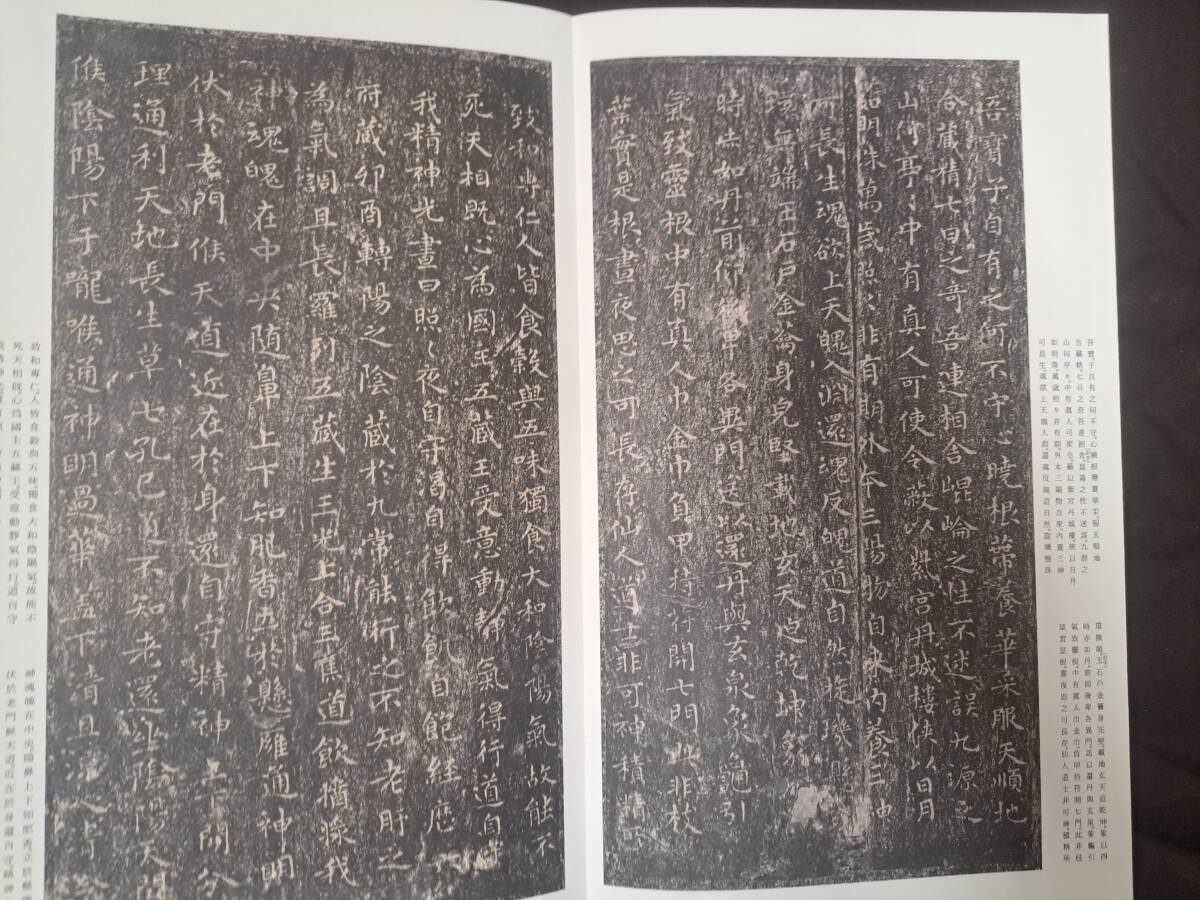 吾寶子自有之何不守心曉根蔕養華采服天順地
合藏精七日之奇吾連相舎崐崙之性不迷誤九源之
山何亭々中有真人可使令蔽以紫宮丹城樓俠以日月
如明珠萬歳照々非有期外本三陽物自來内養三神
可長生魂欲上天魄入淵還魂反魄道自然旋璣懸珠
環無端玉石戸金籥身完堅載地玄天迫乾坤象以四
時赤如丹前仰後卑各異門送以還丹與玄泉象龜引
氣致靈根中有真人巾金巾負甲持符開七門此非枝
葉實是根晝夜思之可長存仙人道士非可神積精所
吾寶子自有之何不守心曉根蔕養華采服天順地
合藏精七日之奇吾連相舎崐崙之性不迷誤九源之
山何亭〻中有真人可使令蔽以紫宮丹城樓俠以日月
如明珠萬歳照〻非有期外本三陽物自來内養三神
可長生魂欲上天魄入淵還魂反魄道自然旋璣懸珠
環無端玉石戸金籥身完堅載地玄天迫乾坤象以四
時赤如丹前仰後卑各異門送以還丹與玄泉象龜引
氣致靈根中有真人巾金巾負甲持符開七門此非枝
葉實是根晝夜思之可長存仙人道士非可神積精所
致和専仁人皆食穀與五味獨食大和陰陽氣故能不
死天相既心為國主五藏王受意動静氣得行道自守
我精神光晝日照〻夜自守渴自得飲飢自飽經歷六
府藏卯酉轉陽之陰藏於九常能術行不知老肝之
為氣調且長羅列五藏生三光上合三焦道飲醬漿我
神魂魄在中央随鼻上下知肥香立於懸雍通神明
伏於老門候天道近在於身還自守精神上下開分
理通利天地長生草七孔已通不知老還坐陰陽天門
候陰陽下于嚨喉通神明過華蓋下清且涼入清泠
致和専仁人皆食穀與五味獨食大和陰陽氣故能不
死天相既心為國主五藏王受意動静氣得行道自守
神魂魄在中央随鼻上下知肥香立於懸雍
伏於老門候天道近在於身還自守精神